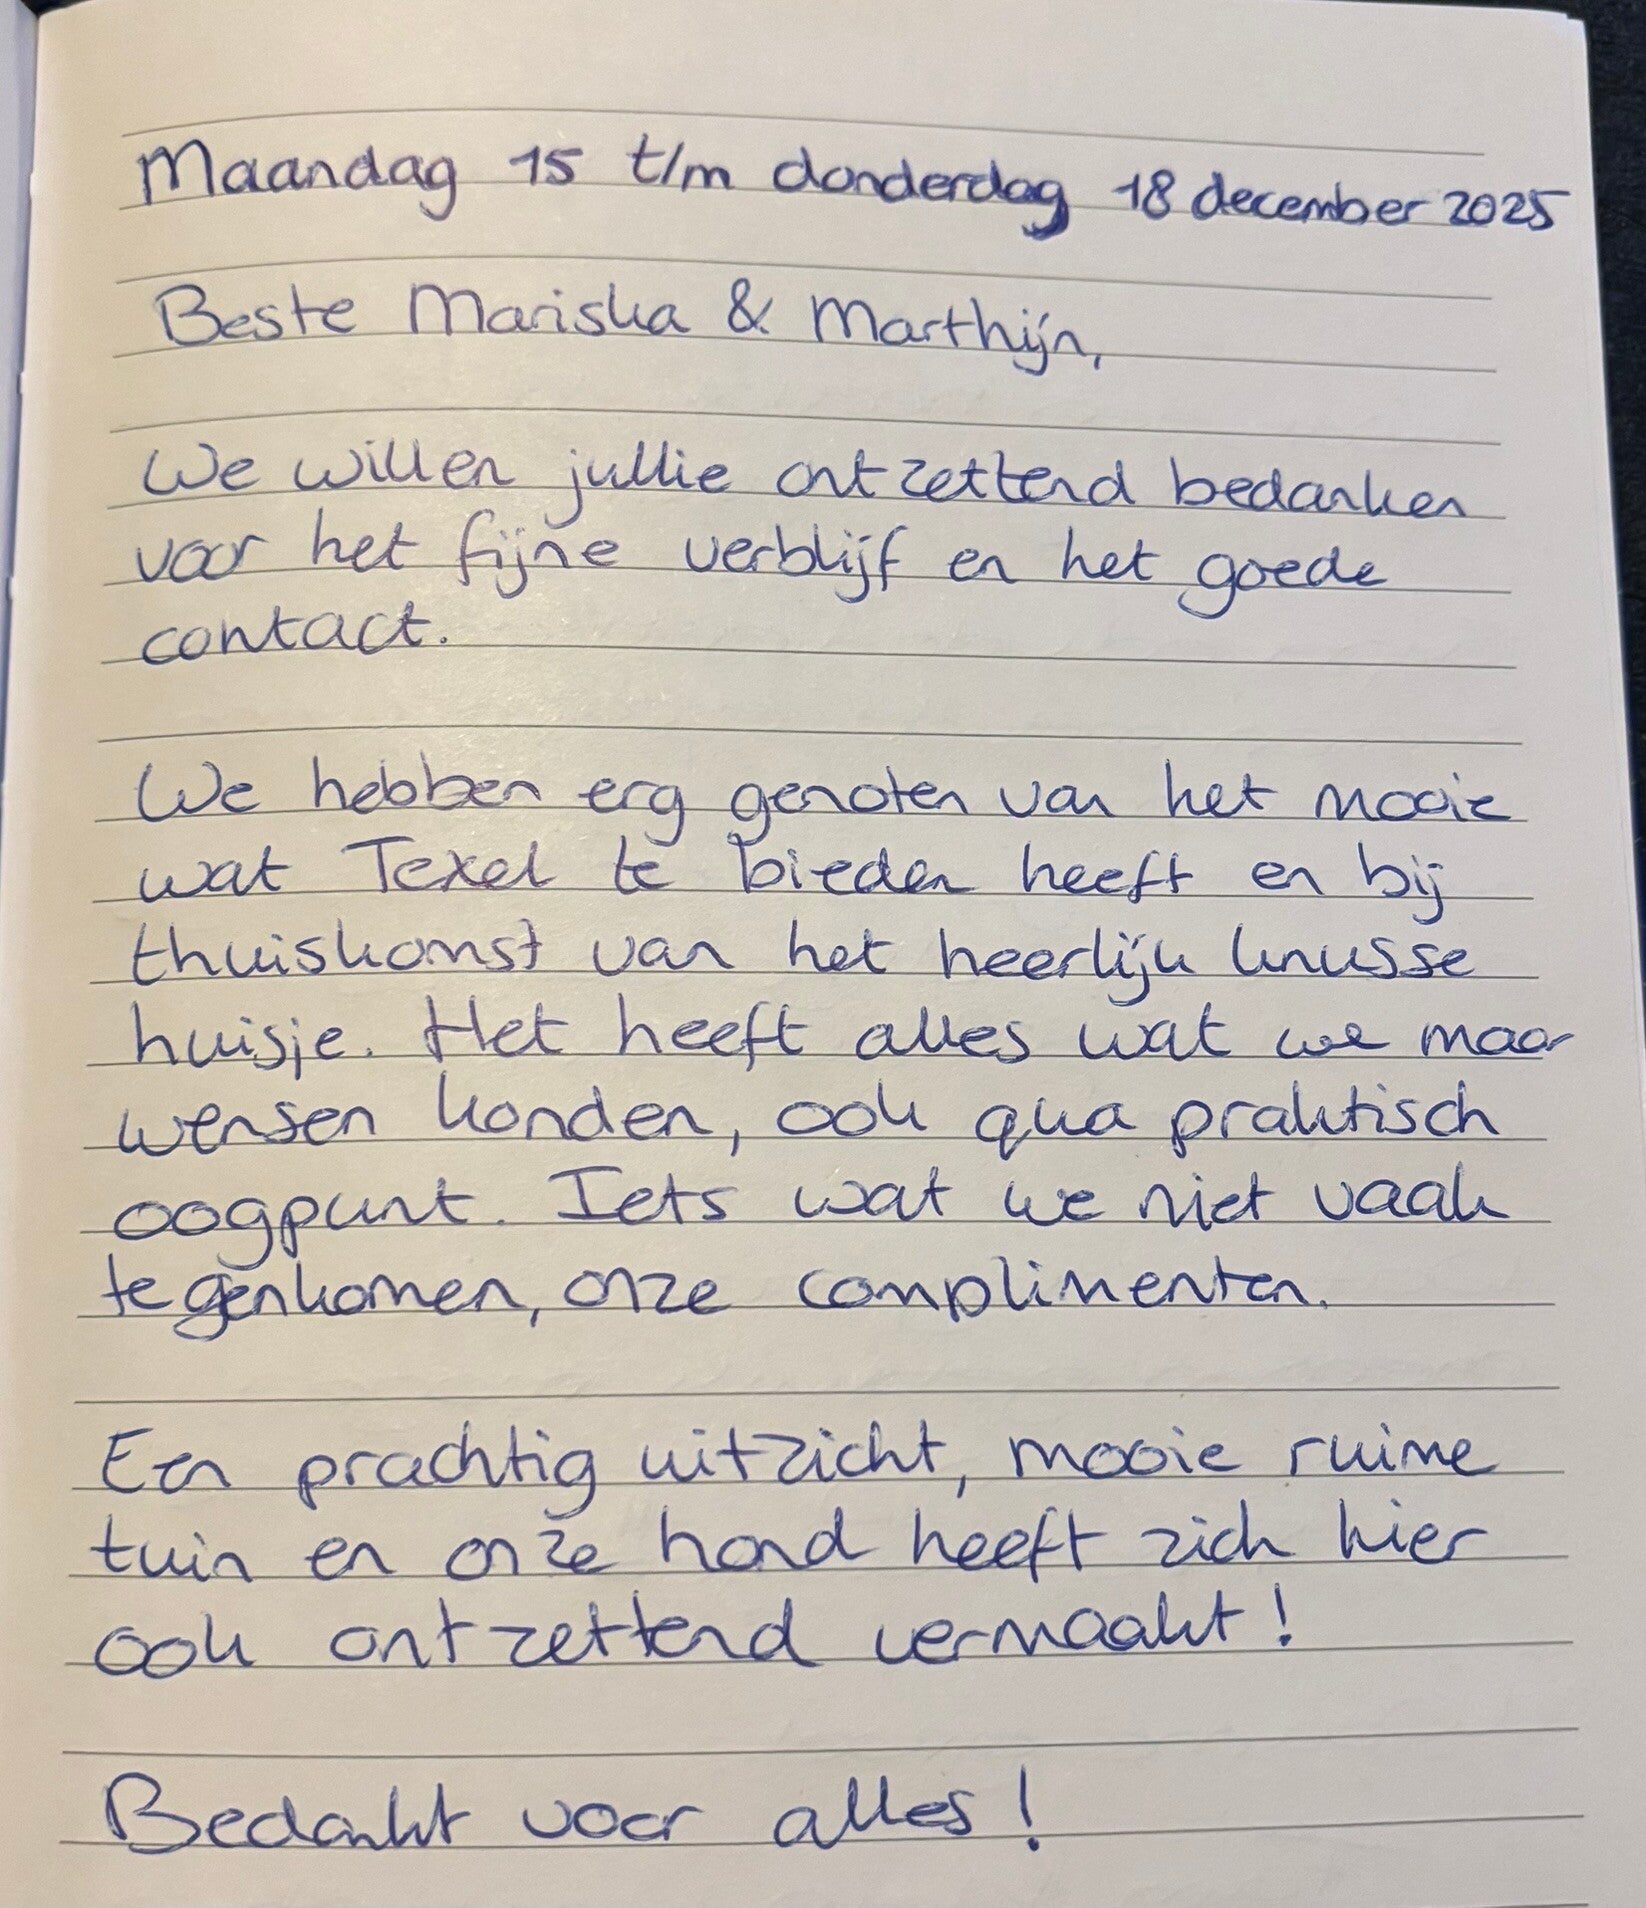 Maandag 15 t/m donderdag 18 december 2025
Beste Mariska & Marthijn,
We willen jullie ontzettend bedanken
voor het fijne verblijf en het goede
contact.
We hebben erg genoten van het mooie
wat Texel te bieden heeft en bij
thuiskomst van het heerlijk knusse
huisje. Het heeft alles wat we maar
wensen konden, ook qua praktisch
oogpunt. Iets wat we niet vaak
tegenkomen, onze complimenten.
Een prachtig uitzicht, mooie ruime
tuin en onze hond heeft zich hier
ook ontzettend vermaakt!
Bedankt voor alles!